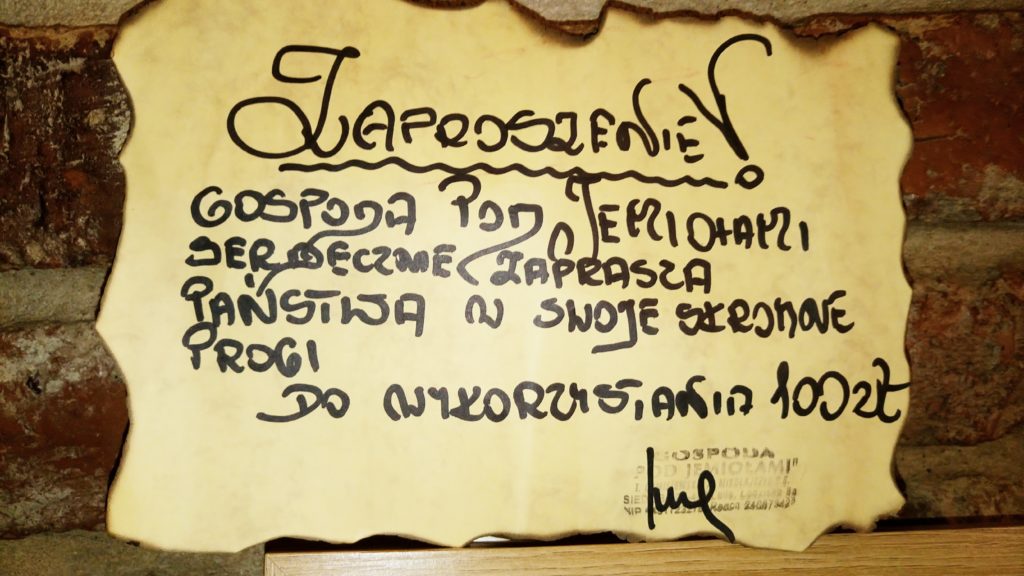 Zaproszenie!
Gospoda Pod Jemiołami
serdecznie zaprasza
Państwa w swoje skromne
progi
do wykorzystania 100 zł
GOSPODA
"POD JEMIOŁAMI"